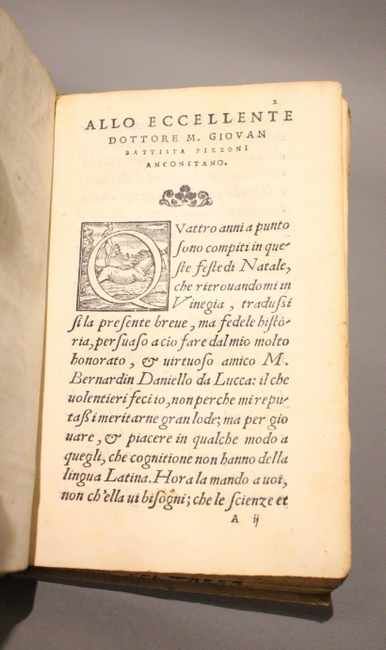 2
ALLO ECCELLENTE
DOTTORE M. GIOVAN
BATTISTA PIZZONI
ANCONITANO.
QVattro anni a punto
sono compiti in que-
ste feste di Natale,
che ritrouandomi in
Vinegia, tradussi
si la presente breue, ma fedele histo-
ria, persuaso a cio fare dal mio molto
honorato, & uirtuoso amico M.
Bernardin Daniello da Lucca: il che
uolentieri feci io, non perche mi repu-
tassi meritarne gran lode; ma per gio
uare, & piacere in qualche modo a
quegli, che cognitione non hanno della
lingua Latina. Hora la mando a uoi,
non ch'ella ui bisogni; che le scienze et
A ij